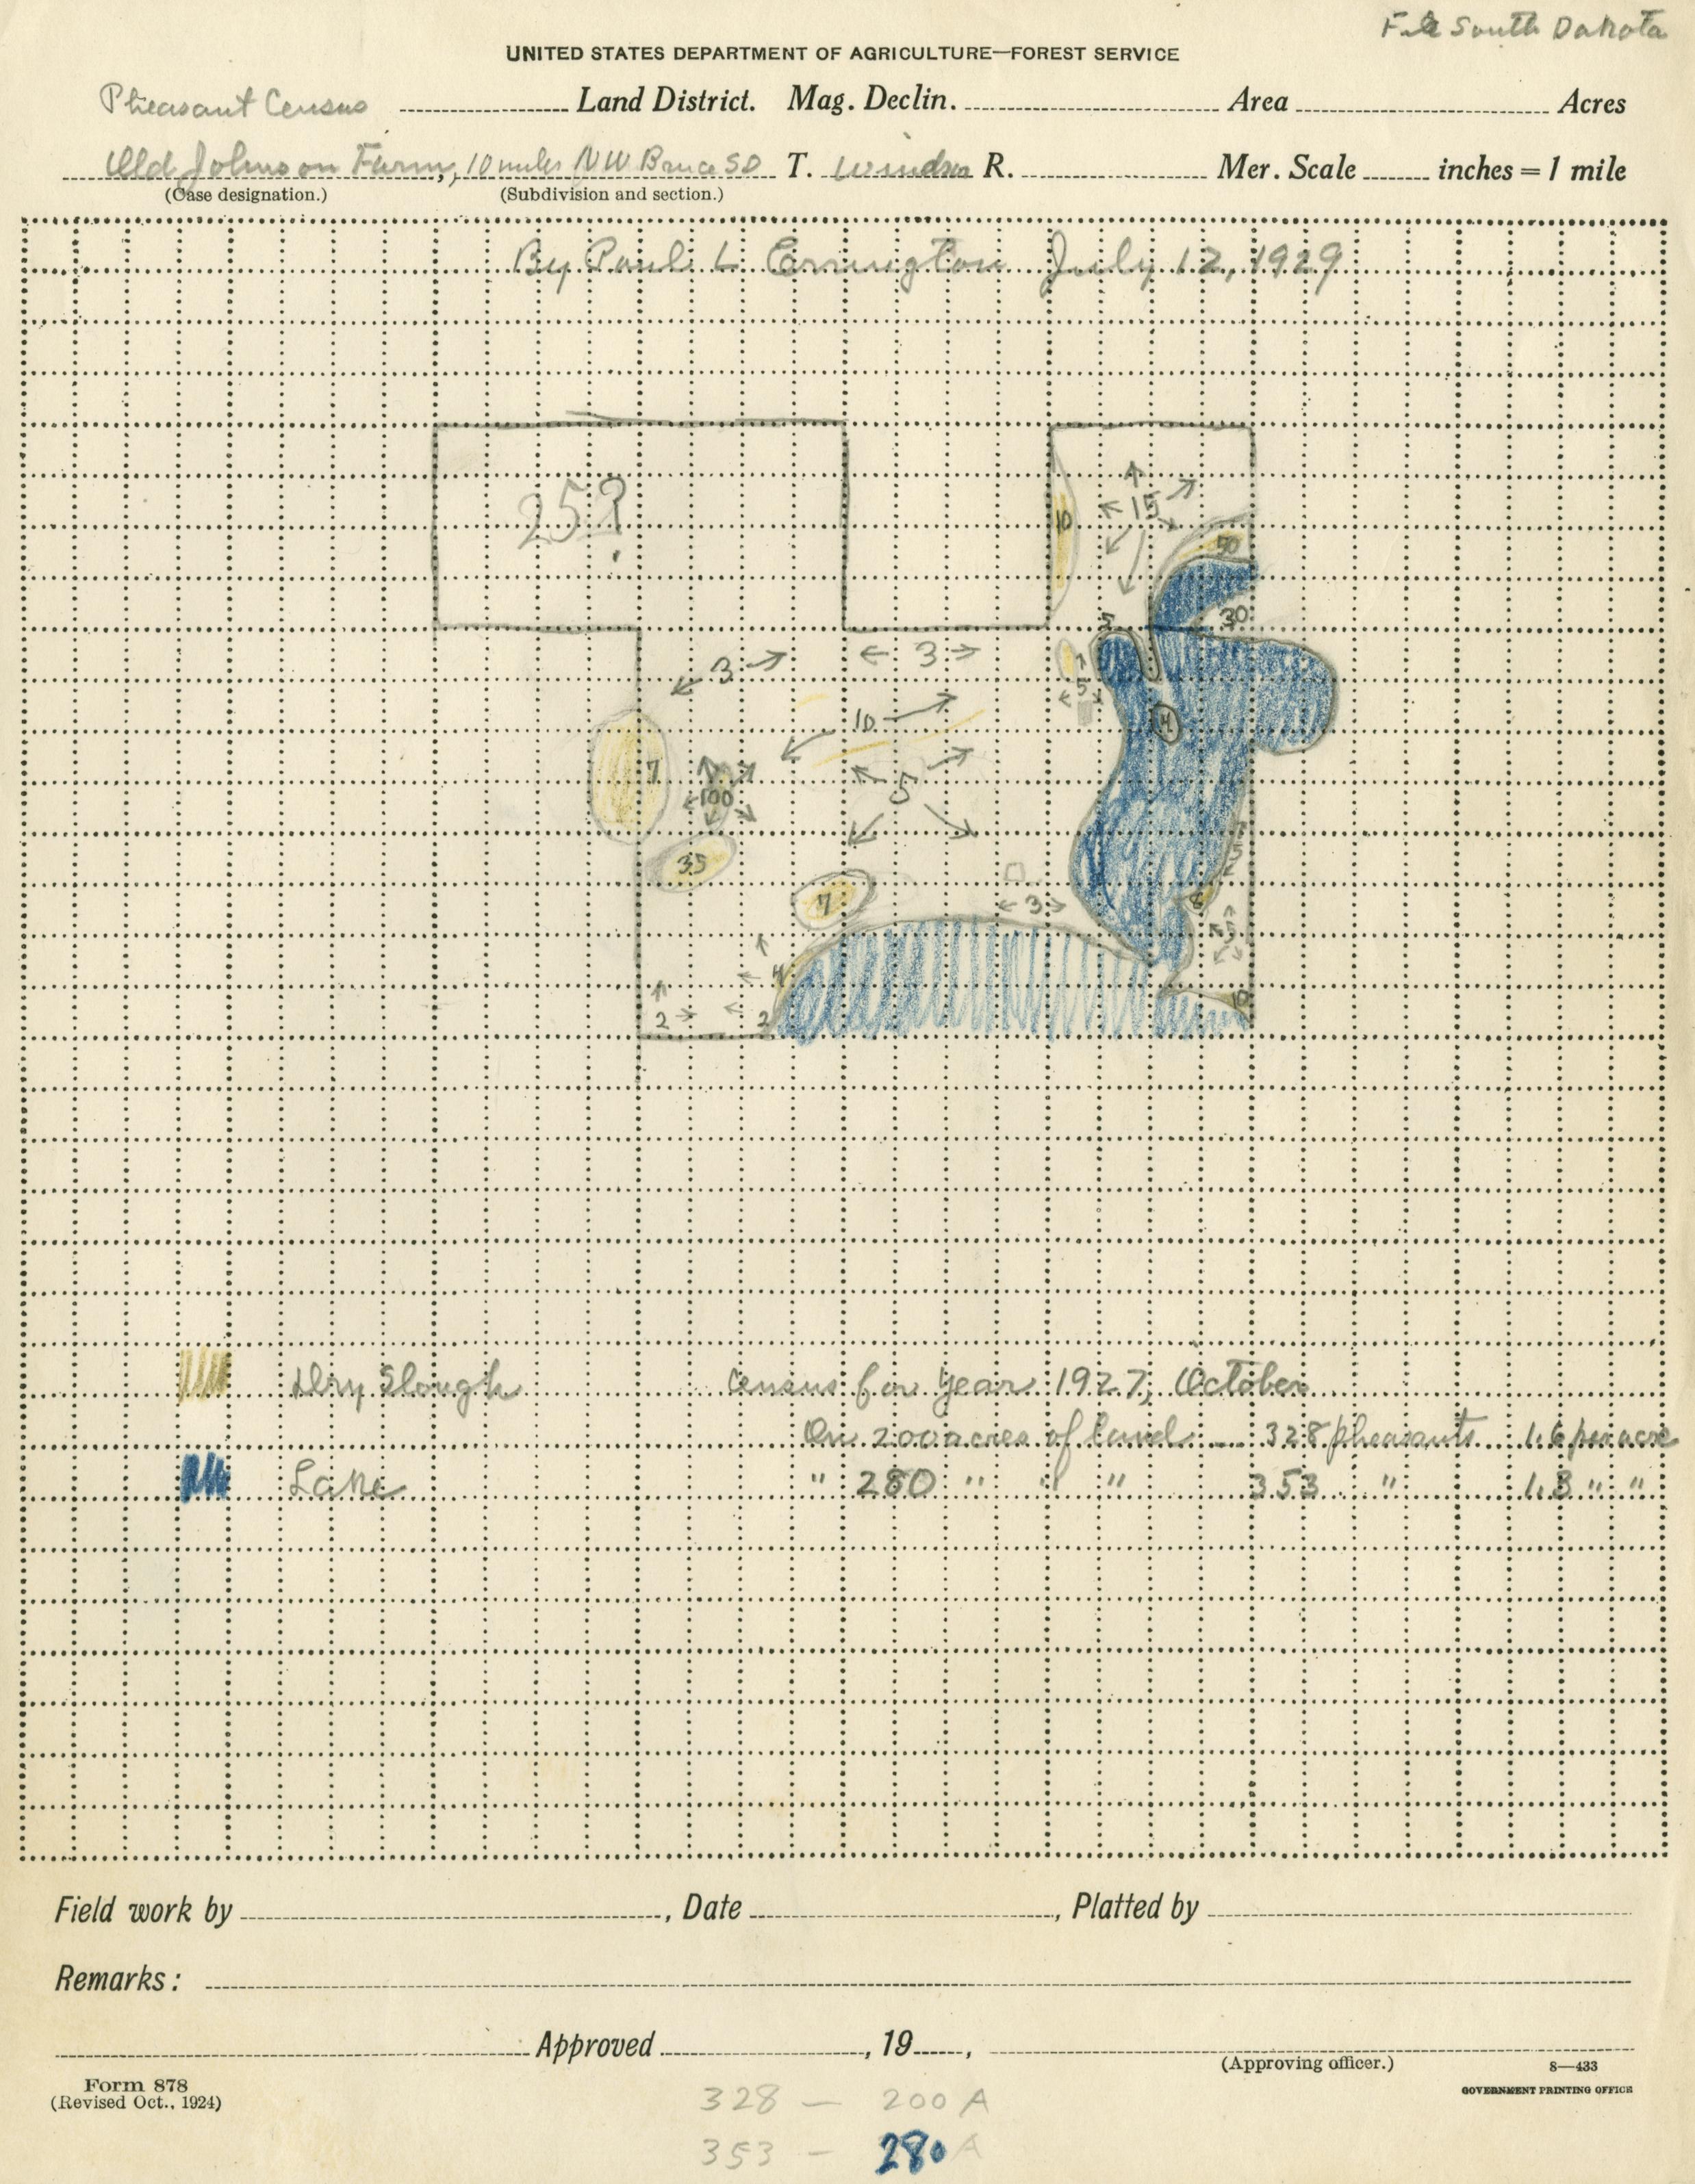 File South Dakota
UNITED STATES DEPARTMENT OF AGRICULTURE—FOREST SERVICE
Pheasant Census Land District. Mag. Declin. Area Acres
Old Johnson Farm, 10 miles NW Bruce SD T. Windsor R. Mer. Scale inches = 1 mile
(Case designation.) (Subdivision and section.)
By Paul L Errington July 12, 1929
25?
15
10
50
30
5
3 3
5
10 4
7
100 5
5
35
7 3 8
5
4
10
2 2
Dry Slough Census for Year 1927, October
On 200 acres of land 328 pheasants 1.6 per acre
Lake " 280 " " " 353 " 1.3 " "
Field work by , Date , Platted by
Remarks:
Approved , 19 ,
(Approving officer.) 8—433
Form 878
(Revised Oct., 1924) GOVERNMENT PRINTING OFFICE
328 — 200 A
353 — 280 A